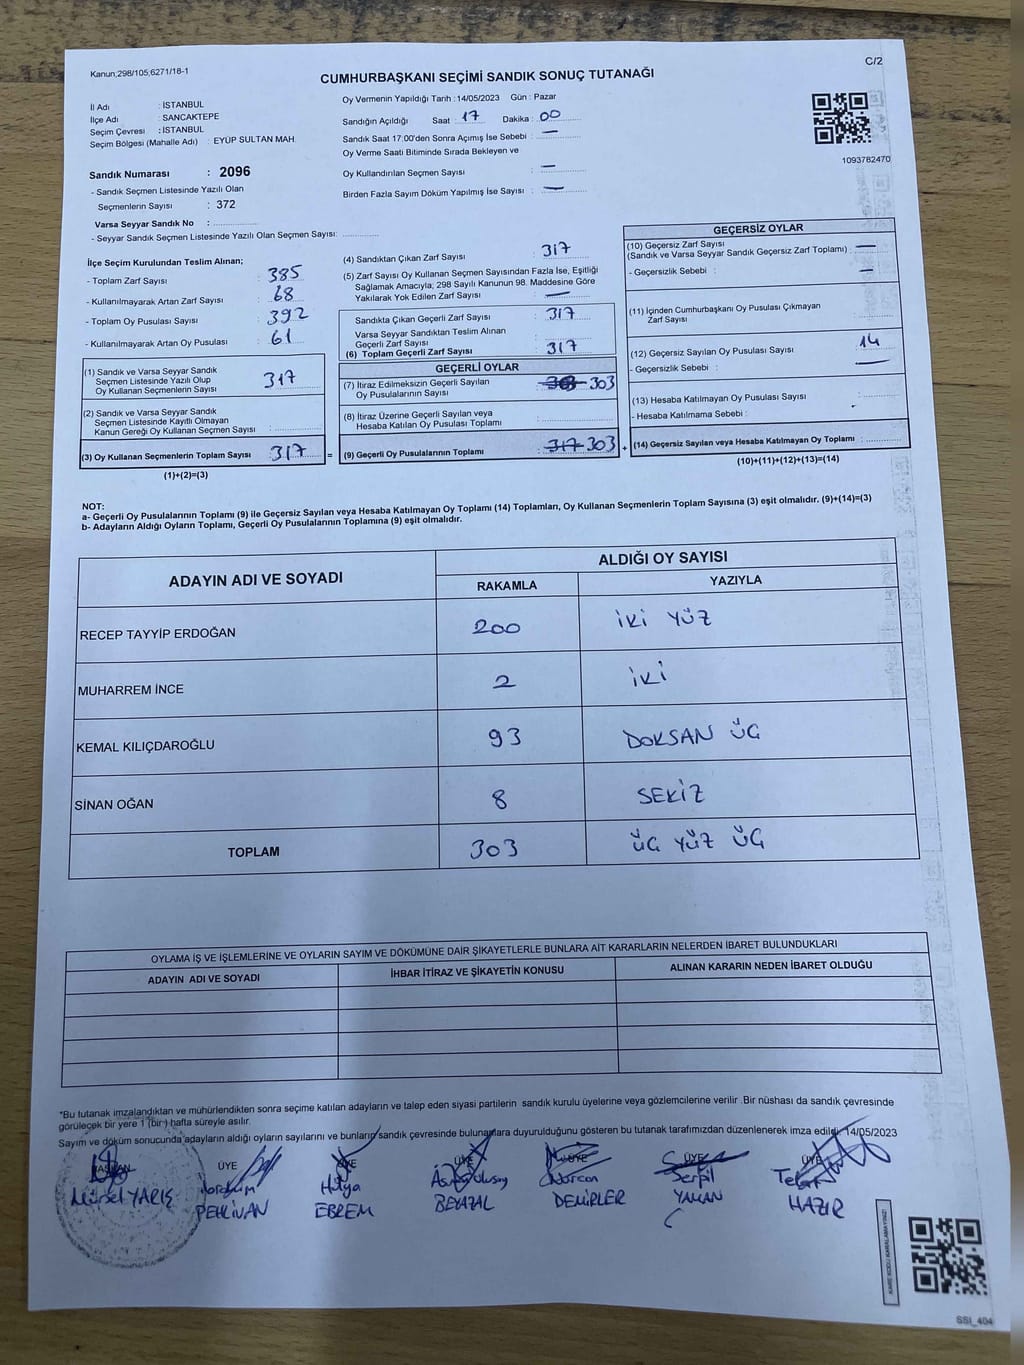 Kanun;298/105;6271/18-1
C/2
CUMHURBAŞKANI SEÇİMİ SANDIK SONUÇ TUTANAĞI
İl Adı : İSTANBUL
İlçe Adı : SANCAKTEPE
Seçim Çevresi : İSTANBUL
Seçim Bölgesi (Mahalle Adı) : EYÜP SULTAN MAH.
Oy Vermenin Yapıldığı Tarih :14/05/2023 Gün : Pazar
Sandığın Açıldığı Saat 17 Dakika : 00
Sandık Saat 17:00'den Sonra Açımış İse Sebebi : —
Oy Verme Saati Bitiminde Sırada Bekleyen ve
Oy Kullandırılan Seçmen Sayısı : —
Birden Fazla Sayım Döküm Yapılmış İse Sayısı : —
1093782470
Sandık Numarası : 2096
- Sandık Seçmen Listesinde Yazılı Olan
Seçmenlerin Sayısı : 372
Varsa Seyyar Sandık No :
- Seyyar Sandık Seçmen Listesinde Yazılı Olan Seçmen Sayısı:
İlçe Seçim Kurulundan Teslim Alınan;
- Toplam Zarf Sayısı : 385
- Kullanılmayarak Artan Zarf Sayısı : 68
- Toplam Oy Pusulası Sayısı : 392
- Kullanılmayarak Artan Oy Pusulası : 61
(1) Sandık ve Varsa Seyyar Sandık
Seçmen Listesinde Yazılı Olup
Oy Kullanan Seçmenlerin Sayısı 317
(2) Sandık ve Varsa Seyyar Sandık
Seçmen Listesinde Kayıtlı Olmayan
Kanun Gereği Oy Kullanan Seçmen Sayısı :
(3) Oy Kullanan Seçmenlerin Toplam Sayısı : 317 =
(1)+(2)=(3)
(4) Sandıktan Çıkan Zarf Sayısı : 317
(5) Zarf Sayısı Oy Kullanan Seçmen Sayısından Fazla İse, Eşitliği
Sağlamak Amacıyla; 298 Sayılı Kanunun 98. Maddesine Göre
Yakılarak Yok Edilen Zarf Sayısı : —
Sandıkta Çıkan Geçerli Zarf Sayısı : 317
Varsa Seyyar Sandıktan Teslim Alınan
Geçerli Zarf Sayısı :
(6) Toplam Geçerli Zarf Sayısı 317
GEÇERLİ OYLAR
(7) İtiraz Edilmeksizin Geçerli Sayılan
Oy Pusulalarının Sayısı 303
(8) İtiraz Üzerine Geçerli Sayılan veya
Hesaba Katılan Oy Pusulası Toplamı
(9) Geçerli Oy Pusulalarının Toplamı 317 303 +
GEÇERSİZ OYLAR
(10) Geçersiz Zarf Sayısı
(Sandık ve Varsa Seyyar Sandık Geçersiz Zarf Toplamı) : —
- Geçersizlik Sebebi : —
(11) İçinden Cumhurbaşkanı Oy Pusulası Çıkmayan
Zarf Sayısı
(12) Geçersiz Sayılan Oy Pusulası Sayısı : 14
- Geçersizlik Sebebi : —
(13) Hesaba Katılmayan Oy Pusulası Sayısı :
- Hesaba Katılmama Sebebi :
(14) Geçersiz Sayılan veya Hesaba Katılmayan Oy Toplamı :
(10)+(11)+(12)+(13)=(14)
NOT:
a- Geçerli Oy Pusulalarının Toplamı (9) ile Geçersiz Sayılan veya Hesaba Katılmayan Oy Toplamı (14) Toplamları, Oy Kullanan Seçmenlerin Toplam Sayısına (3) eşit olmalıdır. (9)+(14)=(3)
b- Adayların Aldığı Oyların Toplamı, Geçerli Oy Pusulalarının Toplamına (9) eşit olmalıdır.
ADAYIN ADI VE SOYADI
ALDIĞI OY SAYISI
RAKAMLA YAZIYLA
RECEP TAYYİP ERDOĞAN 200 İKİ YÜZ
MUHARREM İNCE 2 İKİ
KEMAL KILIÇDAROĞLU 93 DOKSAN ÜÇ
SİNAN OĞAN 8 SEKİZ
TOPLAM 303 ÜÇ YÜZ ÜÇ
OYLAMA İŞ VE İŞLEMLERİNE VE OYLARIN SAYIM VE DÖKÜMÜNE DAİR ŞİKAYETLERLE BUNLARA AİT KARARLARIN NELERDEN İBARET BULUNDUKLARI
ADAYIN ADI VE SOYADI İHBAR İTİRAZ VE ŞİKAYETİN KONUSU ALINAN KARARIN NEDEN İBARET OLDUĞU
*Bu tutanak imzalandıktan ve mühürlendikten sonra seçime katılan adayların ve talep eden siyasi partilerin sandık kurulu üyelerine veya gözlemcilerine verilir .Bir nüshası da sandık çevresinde
görülecek bir yere 1 (bir ) hafta süreyle asılır.
Sayım ve döküm sonucunda adayların aldığı oyların sayılarını ve bunların sandık çevresinde bulunanlara duyurulduğunu gösteren bu tutanak tarafımızdan düzenlenerek imza edildi. 14/05/2023
BAŞKAN ÜYE ÜYE ÜYE ÜYE ÜYE ÜYE
Mürsel YARIŞ
PEHLİVAN
Hülya
EBREM
BEYAZAL
Nurcan
DEMİRLER
Serpil
YAMAN
HAZIR
KARE KODU KARALAMAYINIZ!
SSI_404